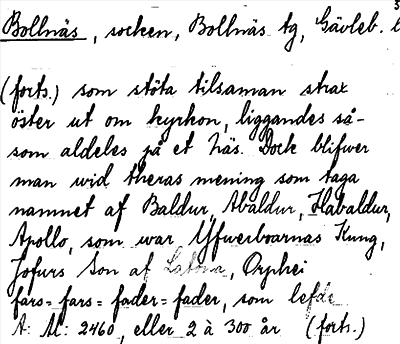 Bollnäs, socken, Bollnäs tg, Gävleb.
(forts.) som stöta tilsaman strax
öster ut om kyrkon, liggandes så-
som aldeles på et Näs. Dock blifwer
man wid theras mening som taga
namnet af Baldur, Abaldur, Habaldur,
Apollo, som war Yfwerboarnas Kung,
Jofurs Son af Latona, Orphei
fars=fars=fader=fader, som lefde
A: M: 2460, eller 2 à 300 år (forts.)